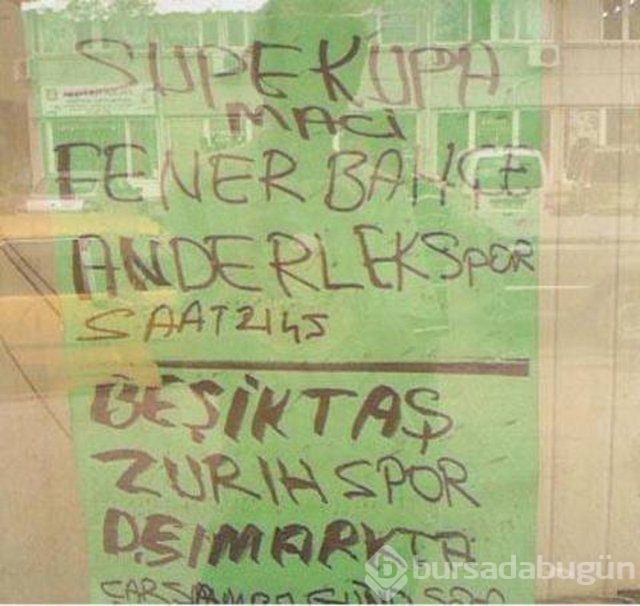 SUPEKUPA
MACI
FENERBAHÇE
ANDERLEKSPOR
SAAT 2145
BEŞİKTAŞ
ZURIHSPOR
DEŞİMARKTA
bursadabugün